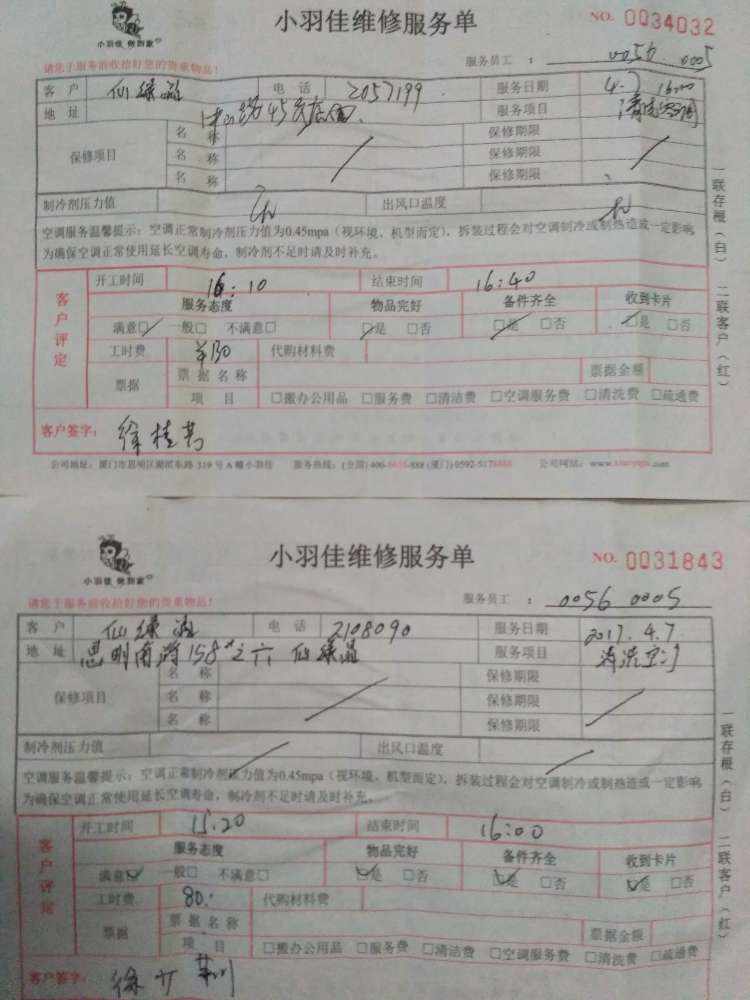 小羽佳维修服务单
NO. 0034032
小羽佳 做到家
请您于服务前收拾好您的贵重物品!
服务员工 : 0056 0005
客户 仙绿 电话 2057199 服务日期 4.7 16:00
地址 45 服务项目 清洗空调
保修项目 名称 保修期限
名称 保修期限
名称 保修期限
制冷剂压力值 出风口温度
空调服务温馨提示:空调正常制冷剂压力值为0.45mpa(视环境、机型而定),拆装过程会对空调制冷或制热造成一定影响
为确保空调正常使用延长空调寿命,制冷剂不足时请及时补充。
一联存根(白) 二联客户(红)
客户评定
开工时间 16:10 结束时间 16:40
服务态度 物品完好 备件齐全 收到卡片
满意□ 一般□ 不满意□ □是 □否 □是 □否 □是 □否
工时费 代购材料费
票据 票据名称 票据金额
项目 □搬办公用品 □服务费 □清洁费 □空调服务费 □清洗费 □疏通费
客户签字: 徐桂
公司地址:厦门市思明区湖滨东路 319 号 A 幢小羽佳 服务热线:(全国) 400-6655-888 (厦门) 0592-5178888 公司网站:
小羽佳维修服务单
NO. 0031843
小羽佳 做到家
请您于服务前收拾好您的贵重物品!
服务员工 : 0056 0005
客户 仙绿 电话 2108090 服务日期 2017.4.7
地址 思明南路158#之六 仙绿 服务项目 清洗空调
保修项目 名称 保修期限
名称 保修期限
名称 保修期限
制冷剂压力值 出风口温度
空调服务温馨提示:空调正常制冷剂压力值为0.45mpa(视环境、机型而定),拆装过程会对空调制冷或制热造成一定影响
为确保空调正常使用延长空调寿命,制冷剂不足时请及时补充。
一联存根(白) 二联客户(红)
客户评定
开工时间 15:20 结束时间 16:00
服务态度 物品完好 备件齐全 收到卡片
满意□ 一般□ 不满意□ □是 □否 □是 □否 □是 □否
工时费 80. 代购材料费
票据 票据名称 票据金额
项目 □搬办公用品 □服务费 □清洁费 □空调服务费 □清洗费 □疏通费
客户签字: 徐